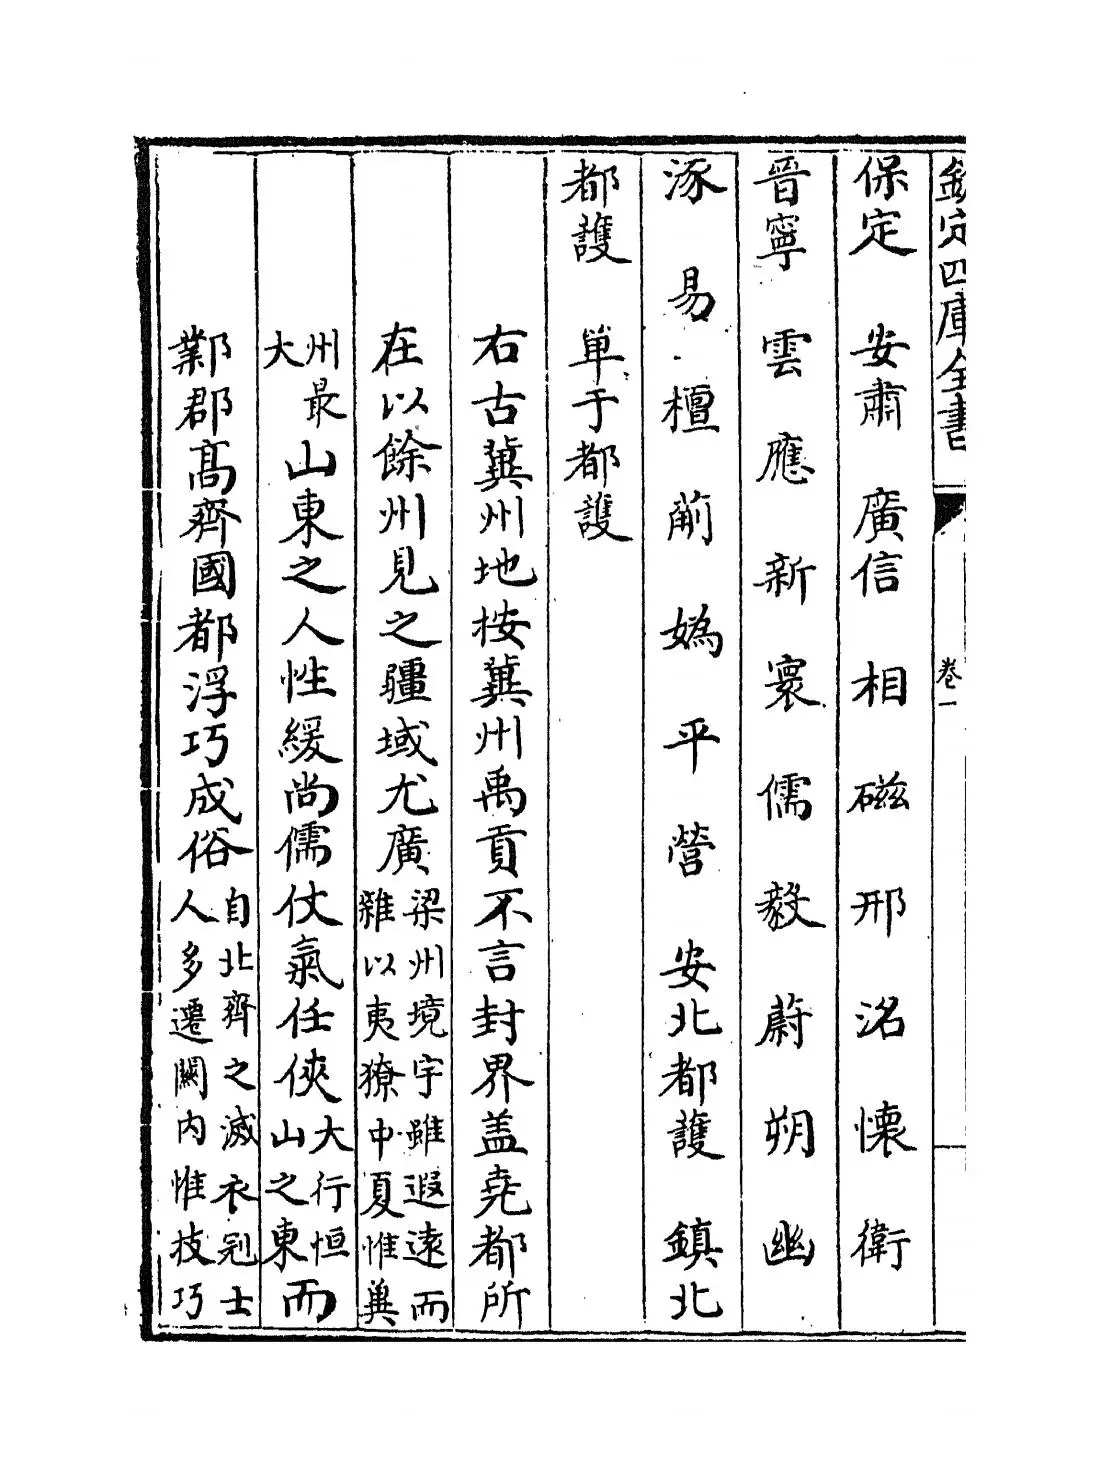 欽定四庫全書
卷一
保定 安肅 廣信 相 磁 邢 洺 懷 衛
晉寧 雲 應 新 寰 儒 毅 蔚 朔 幽
涿 易 檀 薊 媯 平 營 安北都護 鎮北
都護 單于都護
右古冀州地按冀州禹貢不言封界盖堯都所
在以餘州見之疆域尤廣梁州境宇雖遐遠而雜以夷獠中夏惟冀
州最大山東之人性緩尚儒仗氣任俠大行恒山之東而
鄴郡髙齊國都浮巧成俗自北齊之滅衣冠士人多遷闗内惟技巧